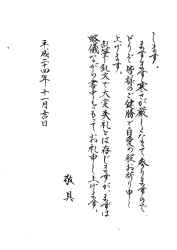 します。
ますます寒さが厳しくなって参りますので
どうぞ皆様のご健勝とご自愛の程お祈り申し
上げます。
乱筆乱文で大変失礼とは存じますがまずは
略儀ながら書中をもってお礼申し上げます。
敬具
平成二十四年十一月吉日